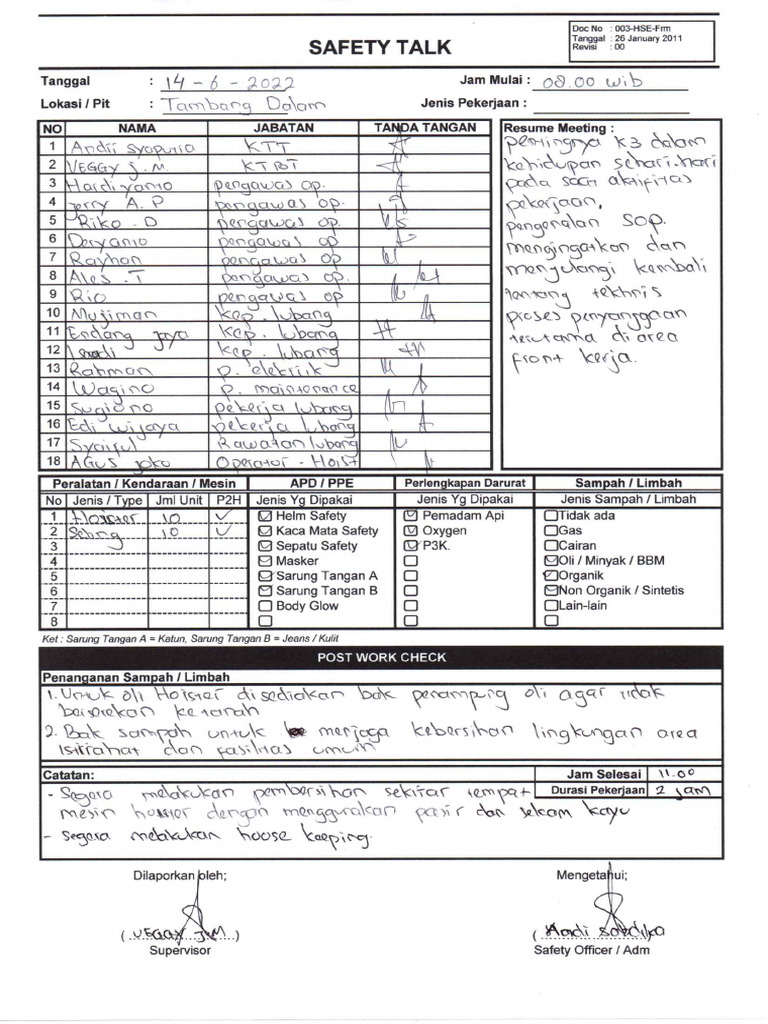 Doc No : 003-HSE-Frm
Tanggal : 26 January 2011
Revisi : 00
SAFETY TALK
Tanggal : 14-6-2022 Jam Mulai : 08.00 wib
Lokasi / Pit : Tambang Dalam Jenis Pekerjaan :
NO NAMA JABATAN TANDA TANGAN
1 Andri Syaputra KTT
2 VEGGY J.M KTBT
3 Hardiyanto pengawas op.
4 Jerry A.P pengawas op
5 Riko . D pengawas op
6 Deryanto pengawas op
7 Rayhan pengawas op
8 Ales . T pengawas op.
9 Rio pengawas op
10 Mujiman kep. lubang
11 Endang jaya kep. lubang
12 kep. lubang
13 Rahman p. elektrik
14 Wagino p. maintenance
15 Sugiono pekerja lubang
16 Edi wijaya pekerja lubang
17 Syaiful Rawatan lubang
18 Agus joko Operator - Hoist
Resume Meeting :
pentingnya K3 dalam
kehidupan sehari-hari
pada saat aktifitas
pekerjaan,
pengenalan SOP.
mengingatkan dan
mengulangi kembali
tentang tekhnis
proses penyanggaan
terutama di area
front kerja.
Peralatan / Kendaraan / Mesin APD / PPE Perlengkapan Darurat Sampah / Limbah
No Jenis / Type Jml Unit P2H Jenis Yg Dipakai Jenis Yg Dipakai Jenis Sampah / Limbah
1 Hoister 10 ✓ ☑ Helm Safety ☑ Pemadam Api ☐ Tidak ada
2 10 ✓ ☑ Kaca Mata Safety ☑ Oxygen ☐ Gas
3 ☑ Sepatu Safety ☑ P3K. ☐ Cairan
4 ☑ Masker ☐ ☑ Oli / Minyak / BBM
5 ☑ Sarung Tangan A ☐ ☑ Organik
6 ☑ Sarung Tangan B ☐ ☑ Non Organik / Sintetis
7 ☐ Body Glow ☐ ☐ Lain-lain
8 ☐ ☐ ☐
Ket : Sarung Tangan A = Katun, Sarung Tangan B = Jeans / Kulit
POST WORK CHECK
Penanganan Sampah / Limbah
1. Untuk oli Hoister disediakan bak penampung oli agar tidak
berserekan ketanah
2. Bak sampah untuk menjaga kebersihan lingkungan area
istirahat dan fasilitas umum
Catatan: Jam Selesai 11.00
Durasi Pekerjaan 2 jam
- Segera melakukan pembersihan sekitar tempat
mesin hoister dengan menggunakan pasir dan sekam kayu
- segera melakukan hoose keeping.
Dilaporkan oleh; Mengetahui;
(VEGGY J.M) (Andi sardika)
Supervisor Safety Officer / Adm